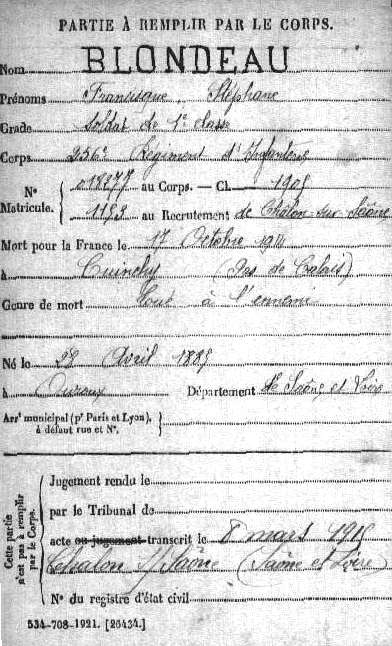 PARTIE À REMPLIR PAR LE CORPS.
Nom BLONDEAU
Prénoms Fransisque, Stéphane
Grade Soldat de 1e classe
Corps 256e Régiment d'Infanterie
N° Matricule. { 018277 au Corps. — Cl. 1905
1153 au Recrutement de Châlon sur Saône
Mort pour la France le 17 Octobre 1914
à Cuinchy (Pas de Calais)
Genre de mort Tué à l'ennemi
Né le 28 Avril 1885
à Ouroux Département de Saône et Loire
Arrt municipal (pr Paris et Lyon), à défaut rue et N°. }
Cette partie n'est pas à remplir par le Corps.
Jugement rendu le
par le Tribunal de
acte ou jugement transcrit le 8 mars 1915
Chalon s/Saône (Saône et Loire)
N° du registre d'état civil
534-708-1921. [26434.]